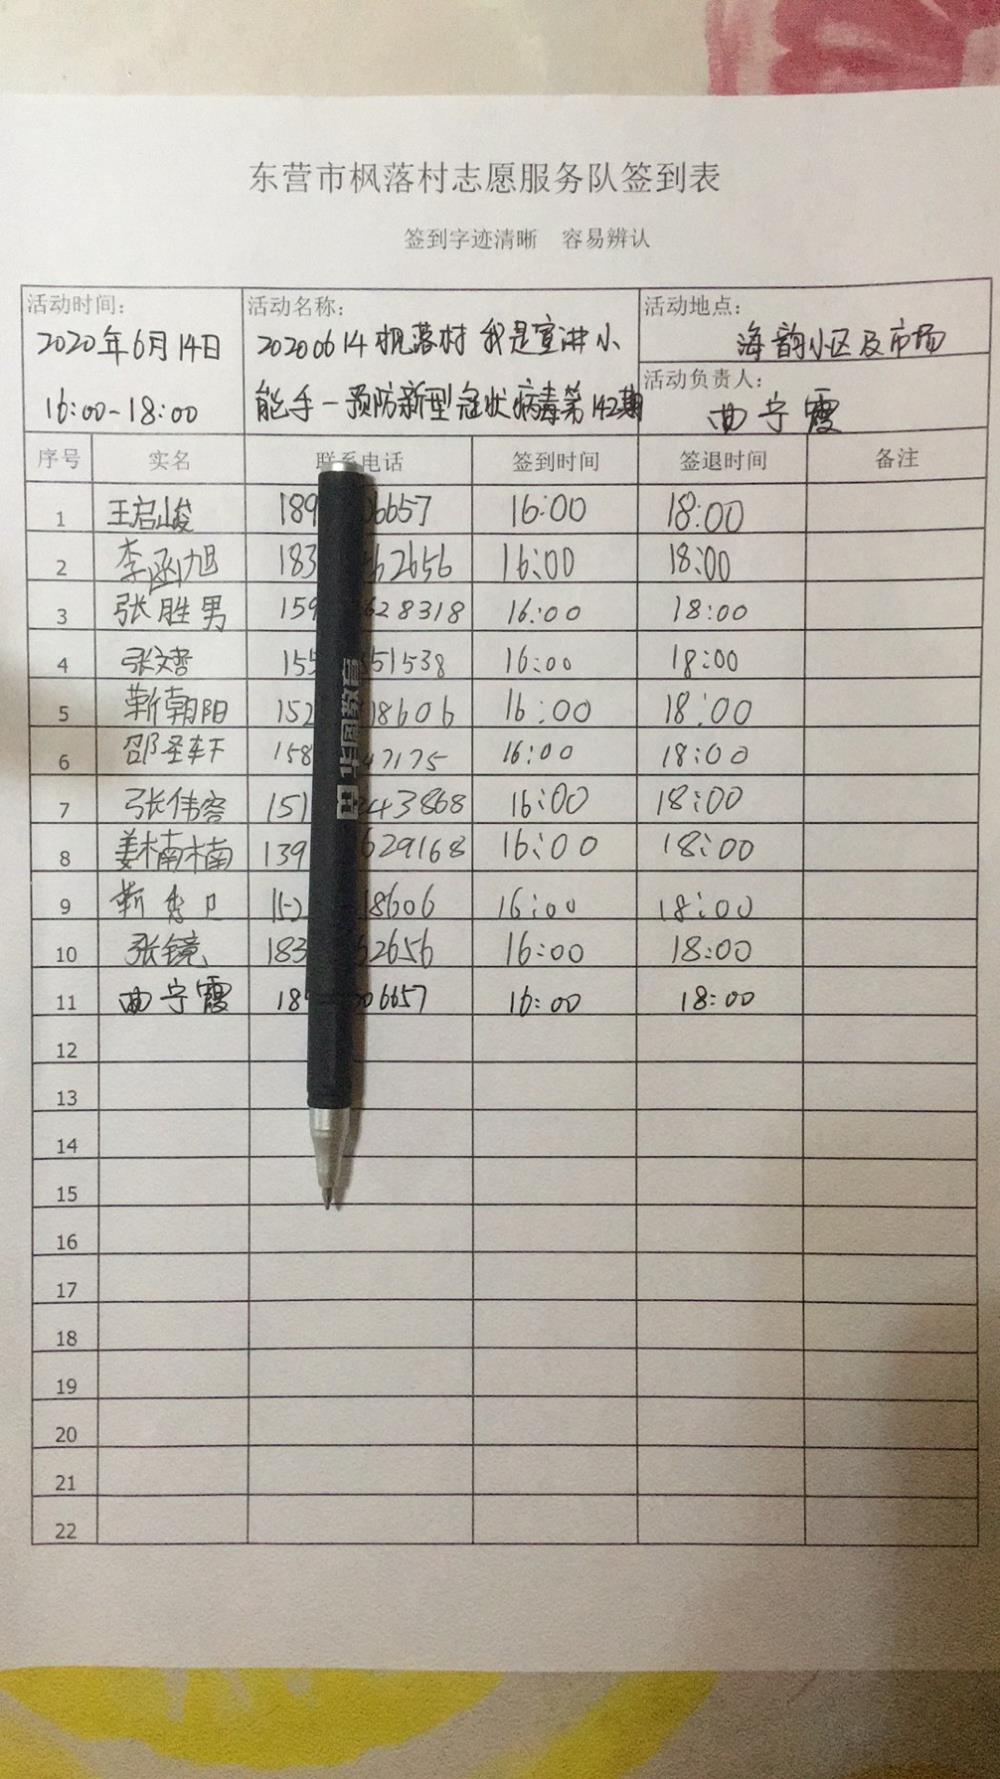 东营市枫落村志愿服务队签到表
签到字迹清晰 容易辨认
活动时间: 活动名称: 活动地点:
2020年6月14日 20200614枫落村 我是宣讲小 海韵小区及市场
活动负责人:
16:00-18:00 能手-预防新型冠状病毒第142期 曲宁霞
序号 实名 联系电话 签到时间 签退时间 备注
1 王启峻 189 06657 16:00 18:00
2 李函旭 183 62656 16:00 18:00
3 张胜男 159 628318 16:00 18:00
4 张文 155 51538 16:00 18:00
5 靳朝阳 152 18606 16:00 18:00
6 邵圣轩 158 47175 16:00 18:00
7 张伟容 151 243868 16:00 18:00
8 姜楠楠 139 629168 16:00 18:00
9 靳秀卫 152 18606 16:00 18:00
10 张镜 183 62656 16:00 18:00
11 曲宁霞 18 06657 16:00 18:00
12
13
14
15
16
17
18
19
20
21
22